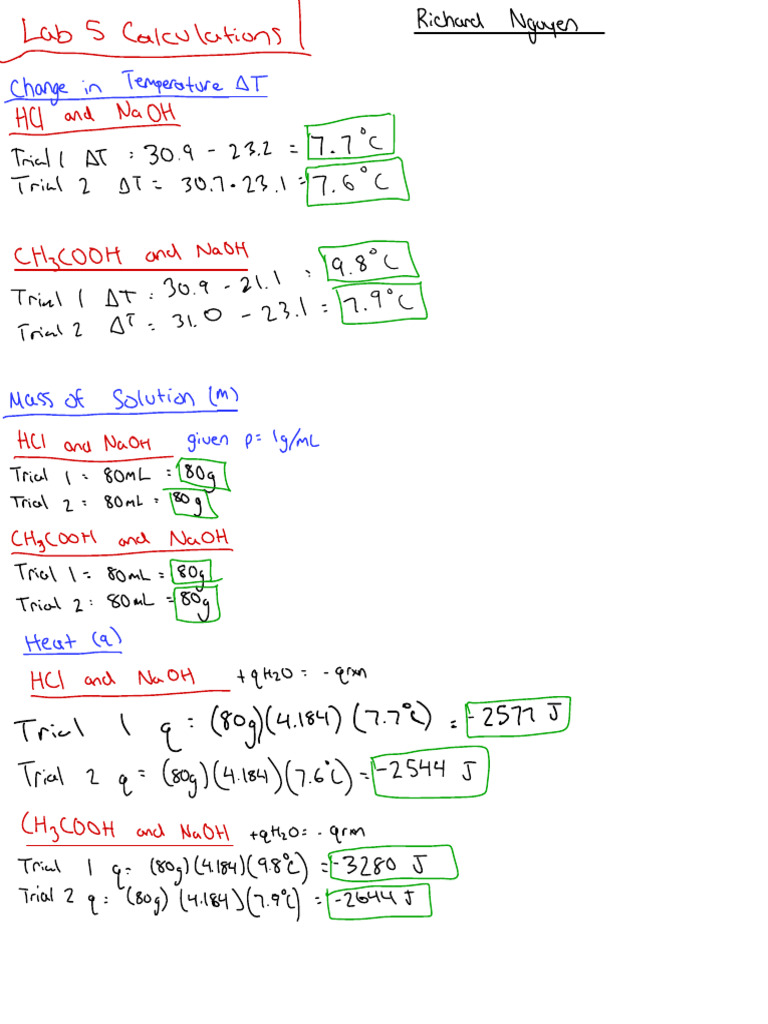 Lab 5 Calculations
Richard Nguyen
Change in Temperature ΔT
HCl and NaOH
Trial 1 ΔT : 30.9 - 23.2 = 7.7°C
Trial 2 ΔT = 30.7 - 23.1 = 7.6°C
CH₃COOH and NaOH
Trial 1 ΔT : 30.9 - 21.1 = 9.8°C
Trial 2 ΔT = 31.0 - 23.1 = 7.9°C
Mass of Solution (m)
HCl and NaOH given ρ= 1g/mL
Trial 1 = 80mL = 80g
Trial 2 = 80mL = 80g
CH₃COOH and NaOH
Trial 1 = 80mL = 80g
Trial 2 : 80mL = 80g
Heat (q)
HCl and NaOH +qH₂O = -qrxn
Trial 1 q = (80g)(4.184)(7.7°C) = -2577 J
Trial 2 q = (80g)(4.184)(7.6°C) = -2544 J
CH₃COOH and NaOH +qH₂O = -qrxn
Trial 1 q = (80g)(4.184)(9.8°C) = -3280 J
Trial 2 q = (80g)(4.184)(7.9°C) = -2644 J